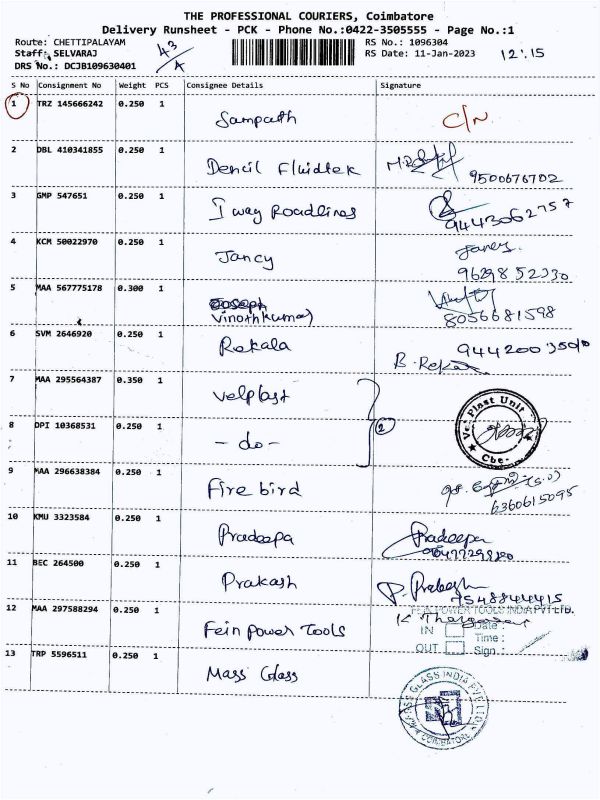 THE PROFESSIONAL COURIERS, Coimbatore
Delivery Runsheet - PCK - Phone No.:0422-3505555 - Page No.:1
Route: CHETTIPALAYAM
Staff: SELVARAJ
DRS No.: DCJB109630401
43/A
RS No.: 1096304
RS Date: 11-Jan-2023
12:15
S No Consignment No Weight PCS Consignee Details Signature
1 TRZ 145666242 0.250 1 Sampath C/N
2 DBL 410341855 0.250 1 Dencil Fluidtek 9500676702
3 GMP 547651 0.250 1 I way Roadlines 9443062757
4 KCM 50022970 0.250 1 Jancy Jancy
9629852330
5 MAA 567775178 0.300 1 Joseph
Vinothkumar 8056681598
6 SVM 2646920 0.250 1 Rekala
B. Rekala
7 MAA 295564387 0.350 1 Velplast
8 DPI 10368531 0.250 1 - do - 2
Vel Plast Unit
Cbe-
9 MAA 296638384 0.250 1 Fire bird
6360615095
10 KMU 3323584 0.250 1 Pradeepa Pradeepa
11 BEC 264500 0.250 1 Prakash P. Prakash
7548844415
12 MAA 297588294 0.250 1 Fein Power Tools
FEIN POWER TOOLS INDIA PVT LTD.
IN Date :
Time :
OUT Sign :
13 TRP 5596511 0.250 1 Mass Glass
GLASS INDIA PVT LTD
COIMBATORE